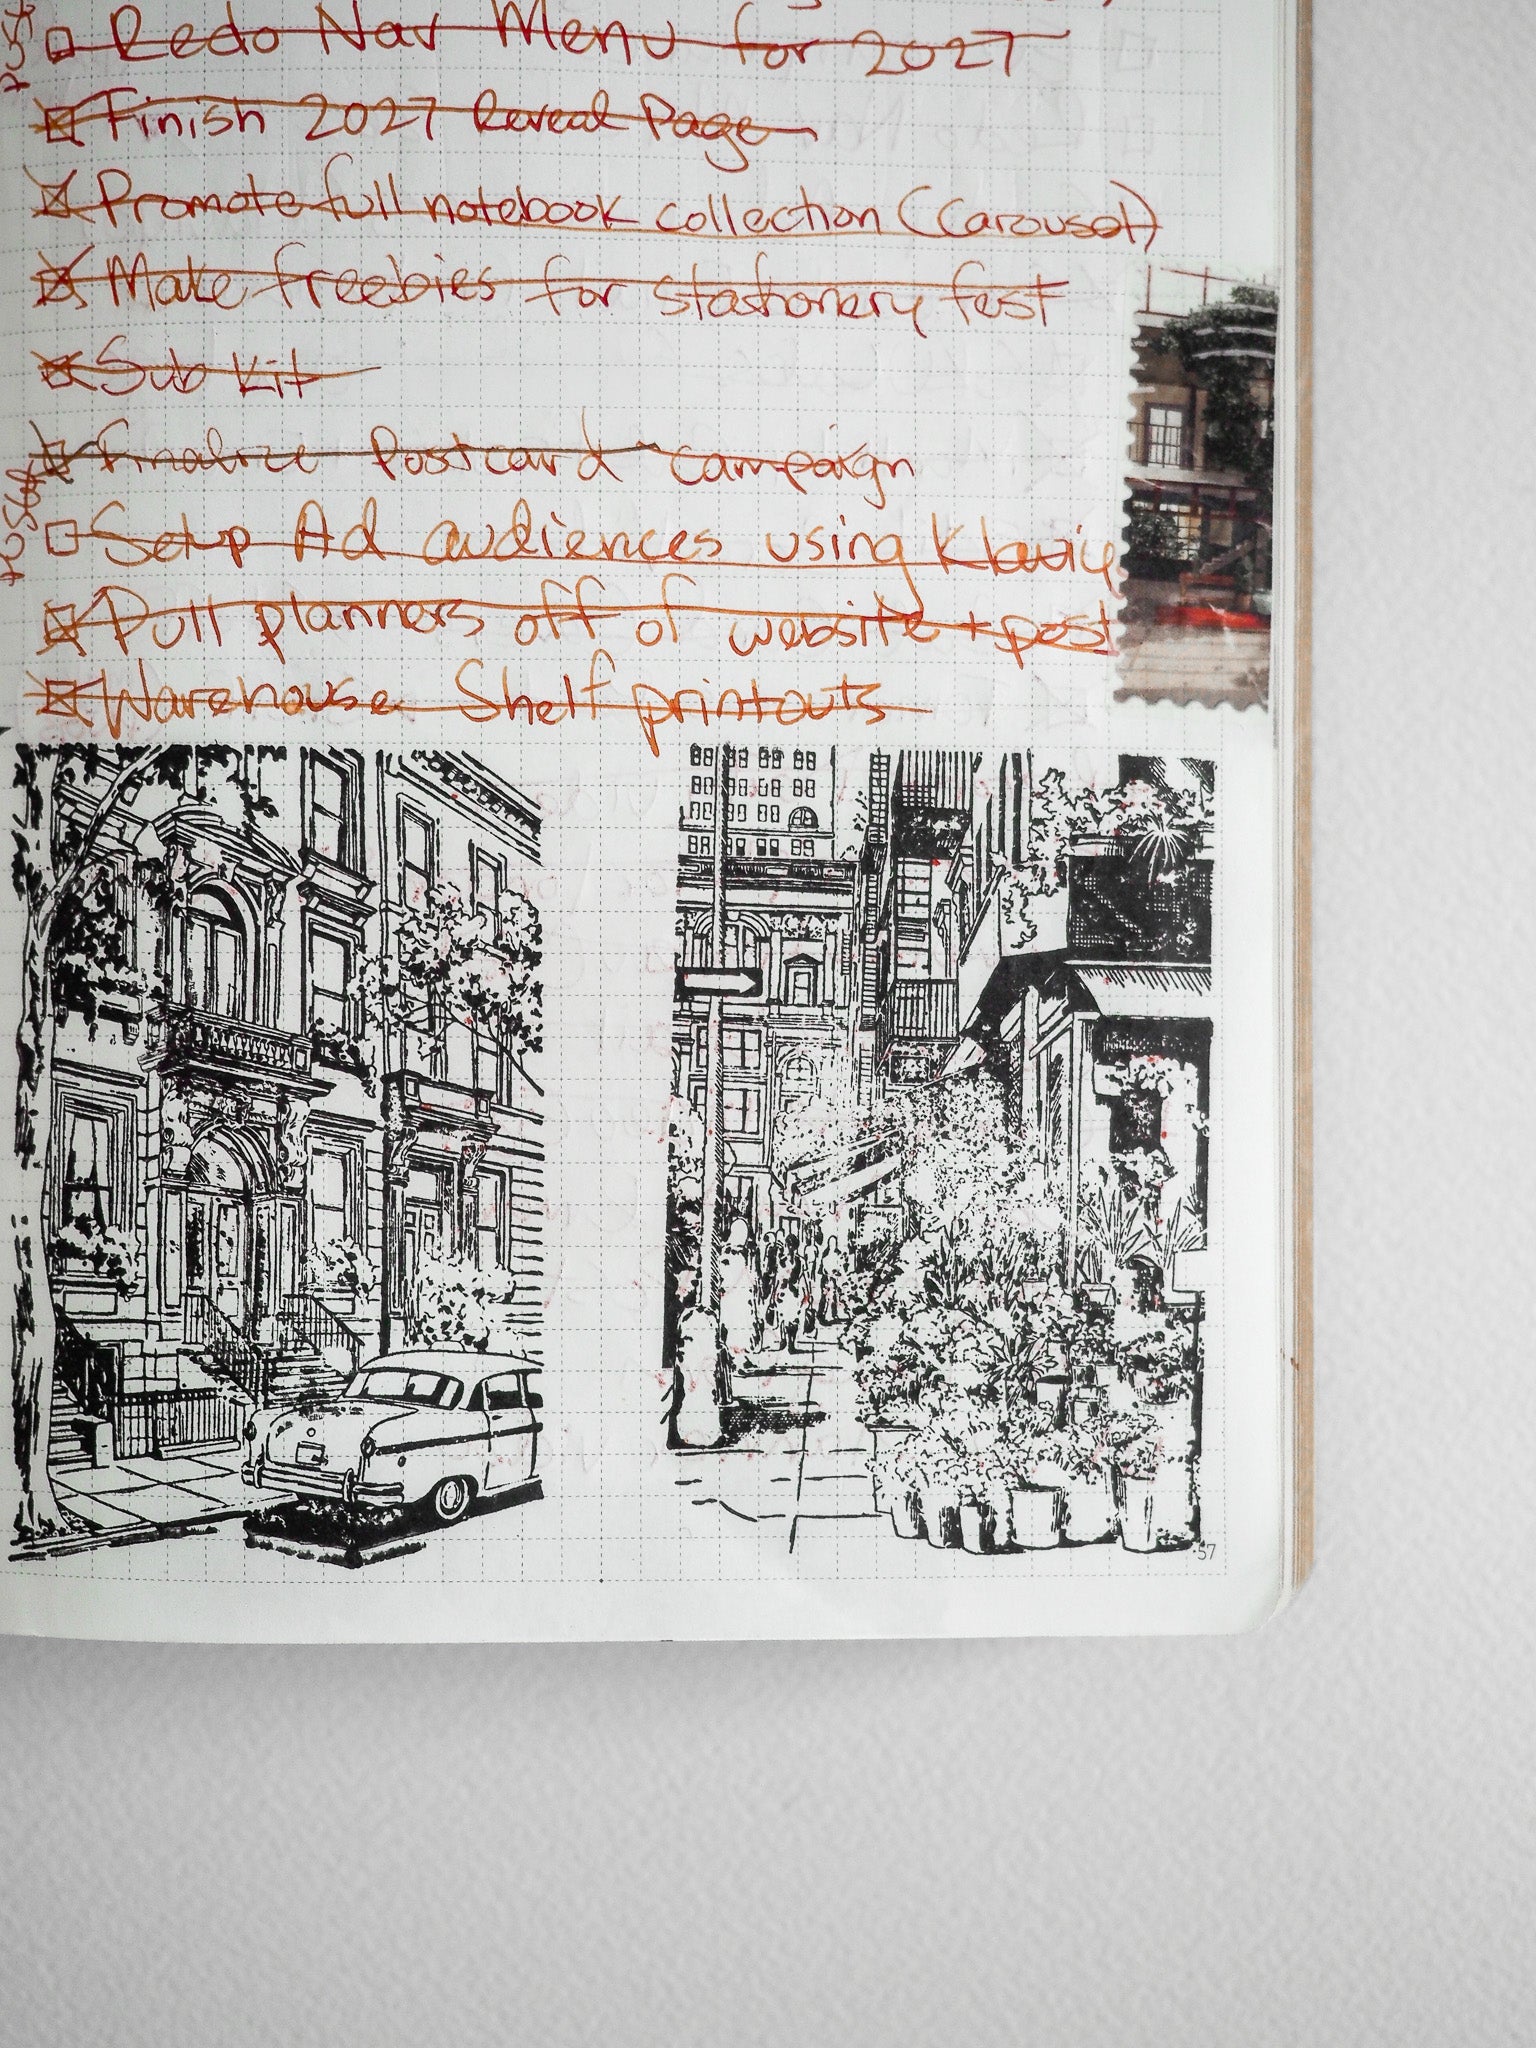 Redo Nav Menu for 2027
Finish 2027 Reveal Page
Promote full notebook collection (Carousel)
Make freebies for stationery fest
Sub Kit
Finalize Postcard campaign
Setup Ad audiences using Klaviy
Pull planners off of website + post
Warehouse Shelf printouts
57